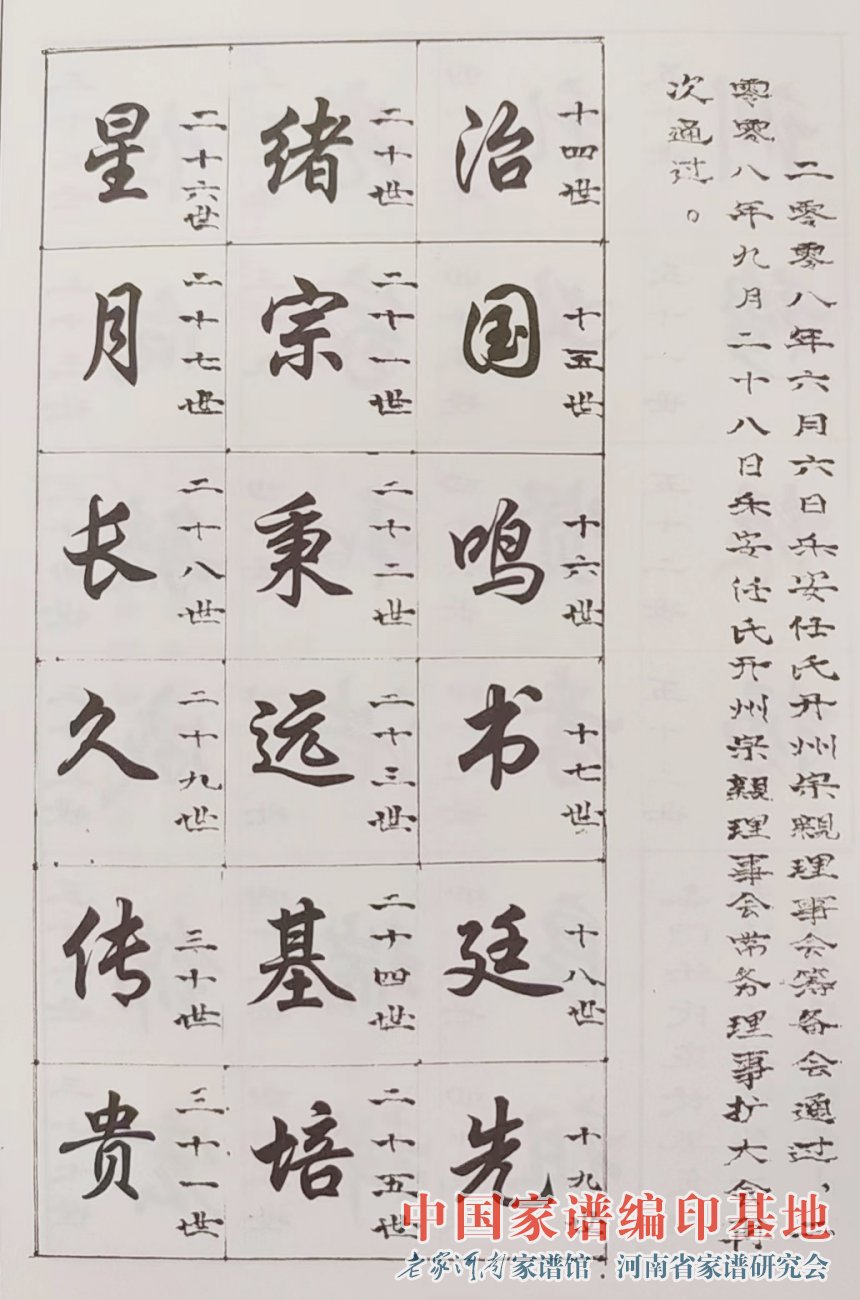 二零零八年六月六日乐安任氏开州宗親理事会筹备会通过，二
零零八年九月二十八日乐安任氏开州宗親理事会常务理事扩大会再
次通过。
十四世 治
十五世 国
十六世 鸣
十七世 书
十八世 廷
十九世 先
二十世 绪
二十一世 宗
二十二世 秉
二十三世 远
二十四世 基
二十五世 培
二十六世 星
二十七世 月
二十八世 长
二十九世 久
三十世 传
三十一世 贵
中国家谱编印基地
老家河南家谱馆 河南省家谱研究会